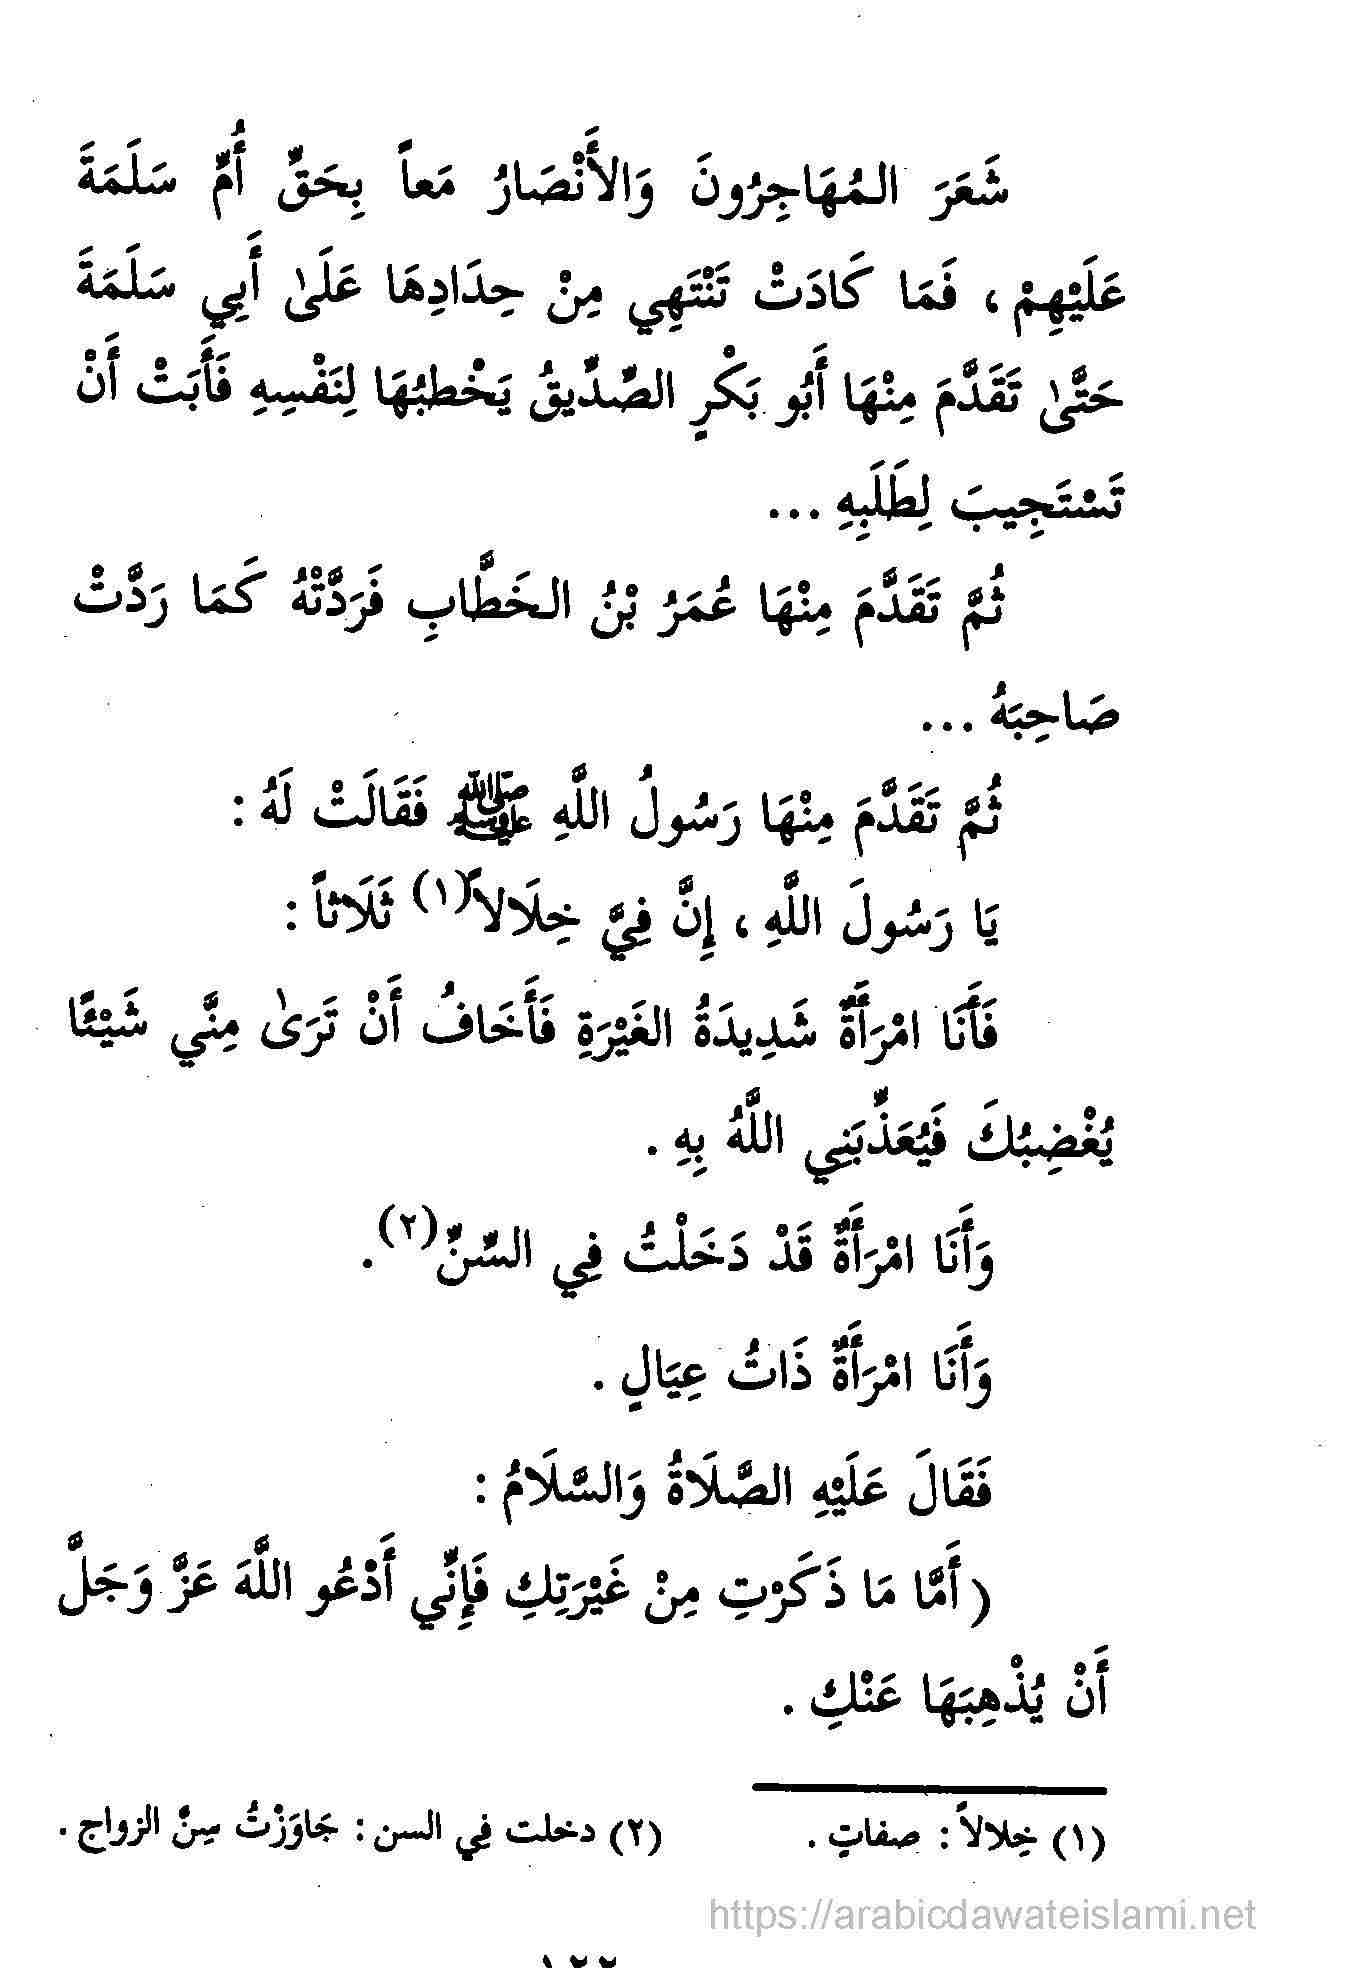 شَعَرَ المُهَاجِرُونَ وَالأَنْصَارُ مَعاً بِحَقِّ أُمِّ سَلَمَةَ
عَلَيْهِمْ ، فَمَا كَادَتْ تَنْتَهِي مِنْ حِدَادِهَا عَلَىٰ أَبِي سَلَمَةَ
حَتَّىٰ تَقَدَّمَ مِنْهَا أَبُو بَكْرٍ الصِّدِّيقُ يَخْطبُهَا لِنَفْسِهِ فَأَبَتْ أَنْ
تَسْتَجِيبَ لِطَلَبِهِ ...
ثُمَّ تَقَدَّمَ مِنْهَا عُمَرُ بْنُ الخَطَّابِ فَرَدَّتْهُ كَمَا رَدَّتْ
صَاحِبَهُ ...
ثُمَّ تَقَدَّمَ مِنْهَا رَسُولُ اللَّهِ ﷺ فَقَالَتْ لَهُ :
يَا رَسُولَ اللَّهِ ، إِنَّ فِيَّ خِلَالاً(١) ثَلَاثاً :
فَأَنَا امْرَأَةٌ شَدِيدَةُ الغَيْرَةِ فَأَخَافُ أَنْ تَرَىٰ مِنَّي شَيْئًا
يُغْضِبُكَ فَيُعَذِّبَنِي اللَّهُ بِهِ .
وَأَنَا امْرَأَةٌ قَدْ دَخَلْتُ فِي السِّنِّ(٢) .
وَأَنَا امْرَأَةٌ ذَاتُ عِيَالٍ .
فَقَالَ عَلَيْهِ الصَّلَاةُ وَالسَّلَامُ :
( أَمَّا مَا ذَكَرْتِ مِنْ غَيْرَتِكِ فَإِنِّي أَدْعُو اللَّهَ عَزَّ وَجَلَّ
أَنْ يُذْهِبَهَا عَنْكِ .
(١) خِلالاً : صفاتٍ .
(٢) دخلت فِي السن : جَاوَزْتُ سِنَّ الزواج .
https://arabicdawateislami.net
١٢٢